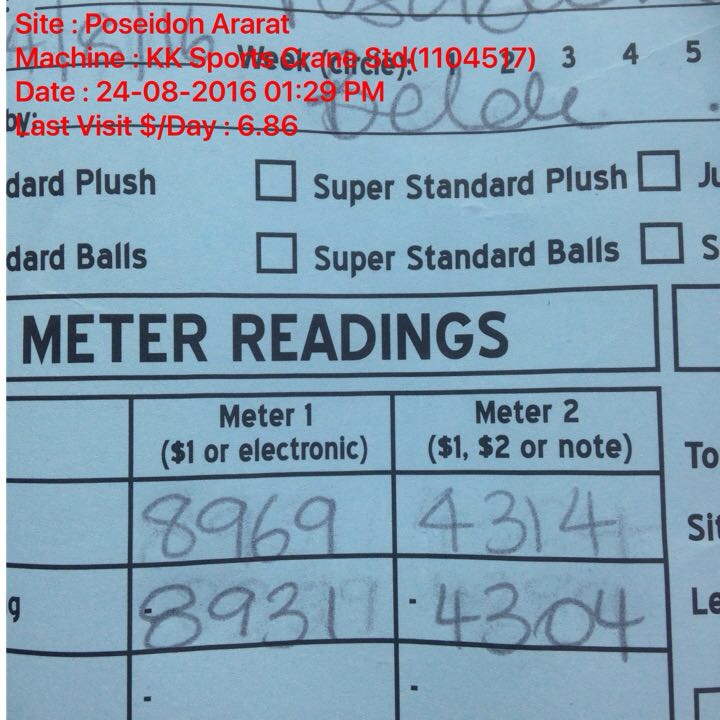 Site : Poseidon Ararat
Machine : KK Sports Crane Std(1104517)
Week (circle): 1 2 3 4 5
Date : 24-08-2016 01:29 PM
by:
Last Visit $/Day : 6.86
dard Plush Super Standard Plush Ju
dard Balls Super Standard Balls S
METER READINGS
Meter 1 Meter 2
($1 or electronic) ($1, $2 or note) To
8969 4314 Sit
g - 8931 - 4304 Le
- -